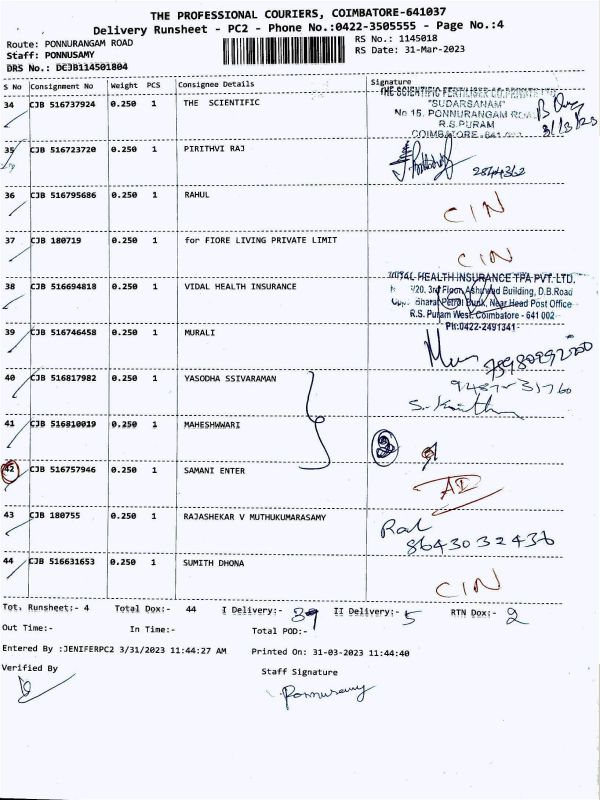 THE PROFESSIONAL COURIERS, COIMBATORE-641037
Delivery Runsheet - PC2 - Phone No.:0422-3505555 - Page No.:4
Route: PONNURANGAM ROAD
RS No.: 1145018
Staff: PONNUSAMY
RS Date: 31-Mar-2023
DRS No.: DCJB114501804
S No Consignment No Weight PCS Consignee Details Signature
34 CJB 516737924 0.250 1 THE SCIENTIFIC
THE SCIENTIFIC FERTILISER CO.PRIVATE LTD
"SUDARSANAM"
No 15, PONNURANGAM ROAD
R.S.PURAM
COIMBATORE - 641 002
31/3/23
35 CJB 516723720 0.250 1 PIRITHVI RAJ
2544362
36 CJB 516795686 0.250 1 RAHUL
CIN
37 CJB 180719 0.250 1 for FIORE LIVING PRIVATE LIMIT
CIN
38 CJB 516694818 0.250 1 VIDAL HEALTH INSURANCE
VIDAL HEALTH INSURANCE TPA PVT. LTD.
/20, 3rd Floor, Building, D.B.Road
Bharat Petrol Bunk, Near Head Post Office
R.S. Puram West, Coimbatore - 641 002
Ph:0422-2491341
39 CJB 516746458 0.250 1 MURALI
40 CJB 516817982 0.250 1 YASODHA SSIVARAMAN
41 CJB 516810019 0.250 1 MAHESHWWARI
42 CJB 516757946 0.250 1 SAMANI ENTER
AD
43 CJB 180755 0.250 1 RAJASHEKAR V MUTHUKUMARASAMY
8643032436
44 CJB 516631653 0.250 1 SUMITH DHONA
CIN
Tot. Runsheet:- 4 Total Dox:- 44 I Delivery:- 37 II Delivery:- 5 RTN Dox:- 2
Out Time:- In Time:- Total POD:-
Entered By :JENIFERPC2 3/31/2023 11:44:27 AM Printed On: 31-03-2023 11:44:40
Verified By Staff Signature
Ponnusamy